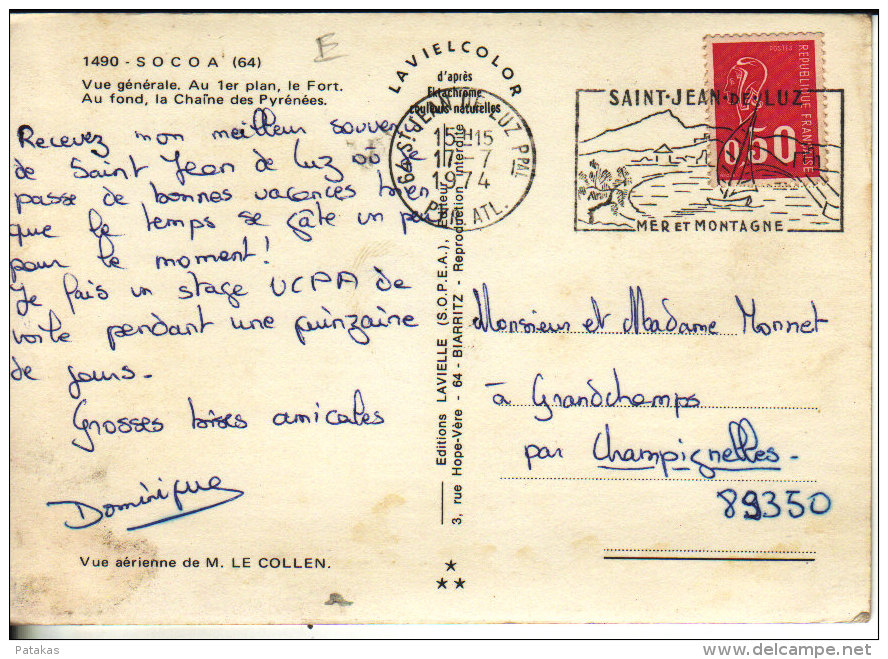 1490 - SOCOA (64)
Vue générale. Au 1er plan, le Fort.
Au fond, la Chaîne des Pyrénées.
E
Recevez mon meilleur souvenir
de Saint Jean de Luz où je
passe de bonnes vacances bien
que le temps se gâte un peu
pour le moment!
Je fais un stage UCPA de
voile pendant une quinzaine
de jours.
Grosses bises amicales
Dominique
Vue aérienne de M. LE COLLEN.
LAVIELCOLOR
d'après
Ektachrome
couleurs naturelles
Editions LAVIELLE (S.O.P.E.A.), Editeur
3, rue Hope-Vère - 64 - BIARRITZ - Reproduction interdite
64 ST JEAN DE LUZ PPAL
15H15
17-7
1974
PYR. ATL.
SAINT-JEAN-DE-LUZ
MER ET MONTAGNE
POSTES
REPUBLIQUE FRANÇAISE
0,50
Monsieur et Madame Monnet
à Grandchamps
par Champignelles.
89350
Patakas
www.delcampe.net